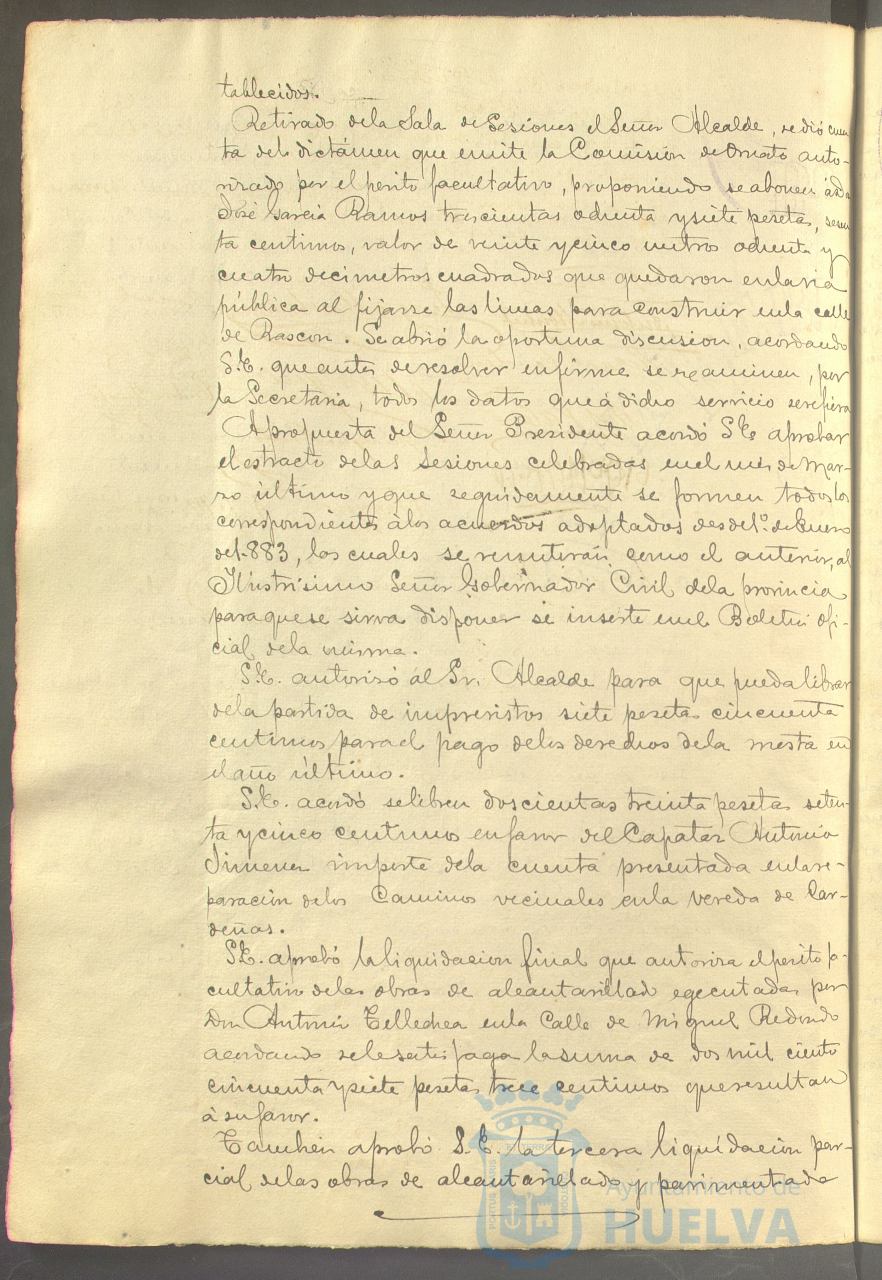 tablecidos.
Retirado dela Sala de Sesiones el Señor Alcalde, se dió cuen
ta del dictámen que emite la Comision de Ornato auto-
rizado por el perito facultativo, proponiendo se abonen á
José Garcia Ramos trescientas ochenta y siete pesetas, sesen
ta centimos, valor de veinte y cinco metros ochenta y
cuatro decimetros cuadrados que quedaron en la via
pública al fijarse las lineas para construir en la calle
de Rascon. Se abrió la oportuna discusion, acordando
S.E. que antes de resolver en firme se reexaminen, por
la Secretaria, todos los datos que á dicho servicio se refieran
A propuesta del Señor Presidente acordó S.E. aprobar
el estracto delas Sesiones celebradas en el mes de Mar-
zo último y que seguidamente se formen todos los
correspondientes álos acuerdos adoptados desde 1º. de Enero
de 1.883, los cuales se remitirán como el anterior, al
Ilustrísimo Señor Gobernador Civil dela provincia
para que se sirva disponer se inserte en el Boletin ofi-
cial dela misma.
S.E. autorizó al Sr. Alcalde para que pueda librar
dela partida de imprevistos siete pesetas cincuenta
centimos para el pago delos derechos dela mesta en
el año último.
S.E. acordó se libren doscientas treinta pesetas seten-
ta y cinco centimos en favor del Capataz Antonio
Jimenez importe dela cuenta presentada en la re-
paración delos Caminos vecinales en la vereda de Car-
deñas.
S.E. aprobó la liquidacion final que autoriza el perito fa-
cultativo delas obras de alcantarillado egecutadas por
Don Antonio Tellechea en la Calle de Miguel Redondo
acordando se le satisfaga la suma de dos mil ciento
cincuenta y siete pesetas trece centimos que resultan
á su favor.
Tambien aprobó S.E. la tercera liquidacion par-
cial delas obras de alcantarillado y pavimentado
Ayuntamiento de
HUELVA